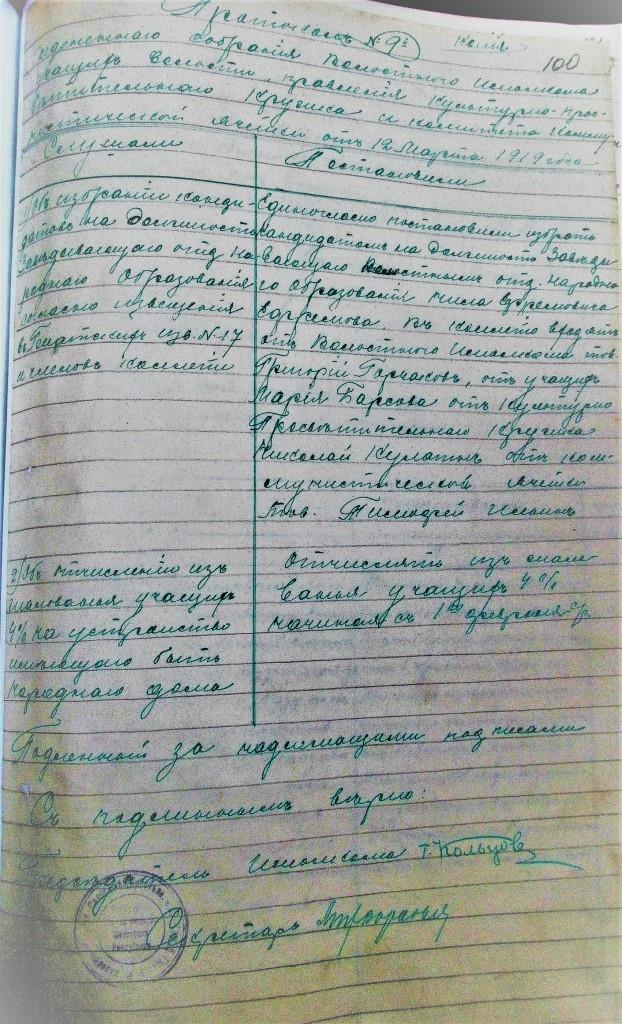 Протоколъ № 9й копія
100
соединеннаго собрания Волостного Исполкома
учащихъ волости, правления Культурно-прос-
ветительнаго Кружка и комитета Комму-
нистической ячейки отъ 12 Марта 1919 года
Слушали
Постановили
1) Объ избраніи канди-
датовъ на должность
Заведывающаго отд. На-
роднаго Образования
согласно извещения
въ Гжатск. изв. N 17
и членовъ коллегіи
Единогласно постановили избрать
кандидатомъ на должность Заведы-
вающаго Волостнымъ отд. народна-
го образования
Ефремовича
Ефремова. Въ коллегію
отъ Волостного Исполкома тов.
Григорій Горчаковъ, отъ учащихъ
Марія Барсова отъ Культурно
Просветительнаго Кружка
Николай отъ ком-
мунистической ячейки
тов. Тимофей Ильинъ
2) Объ отчислении изъ
жалованья учащихъ
4% на устройство
имеющаго быть
народнаго дома
Отчислять изъ жало-
ванья учащихъ 4%
начиная съ 1го февраля с/г
Подлинный за надлежащими подписями
Съ подлиннымъ верно:
Председатель Исполкома Г. Кольцов
Секретарь